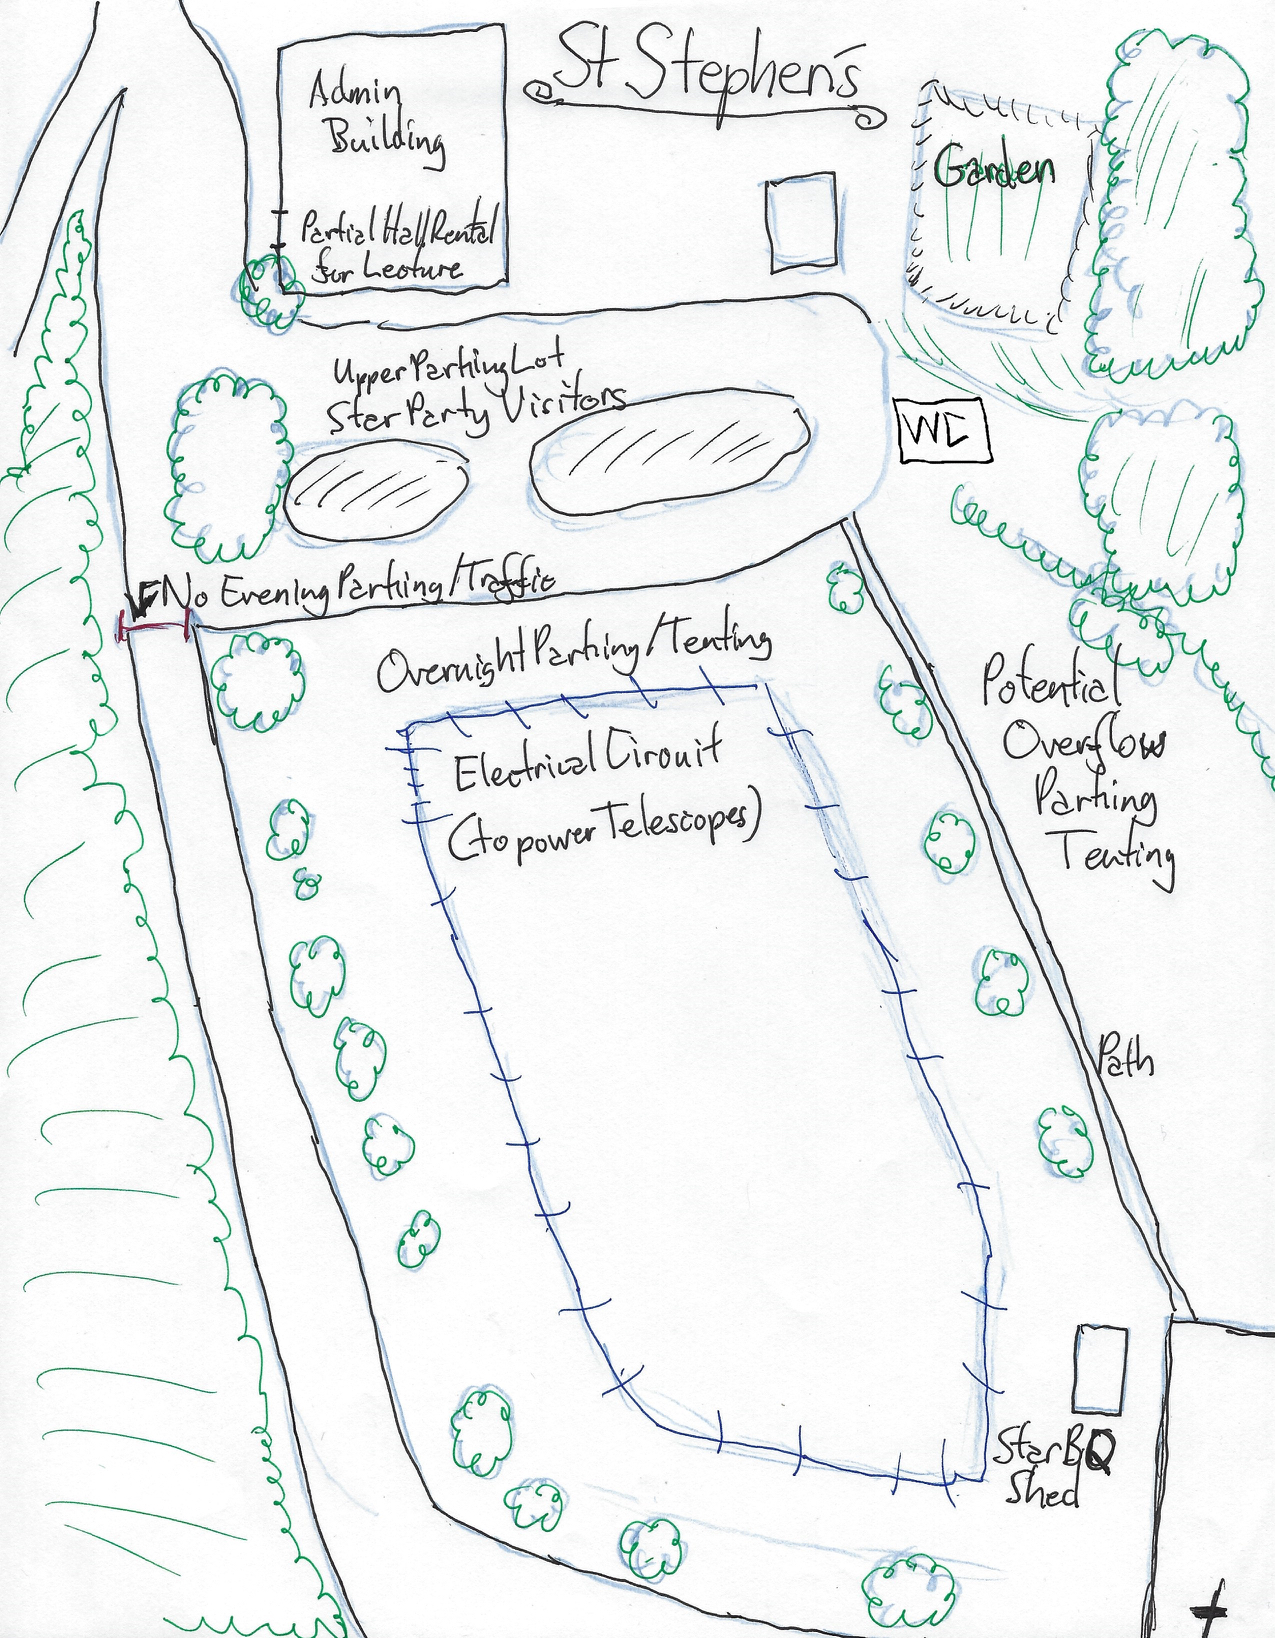 St Stephen's
Admin
Building
Partial Hall Rental
for Lecture
Garden
Upper Parking Lot
Star Party Visitors
WC
No Evening Parking/Traffic
Overnight Parking/Tenting
Electrical Circuit
(to power Telescopes)
Potential
Overflow
Parking
Tenting
Path
StarBQ
Shed